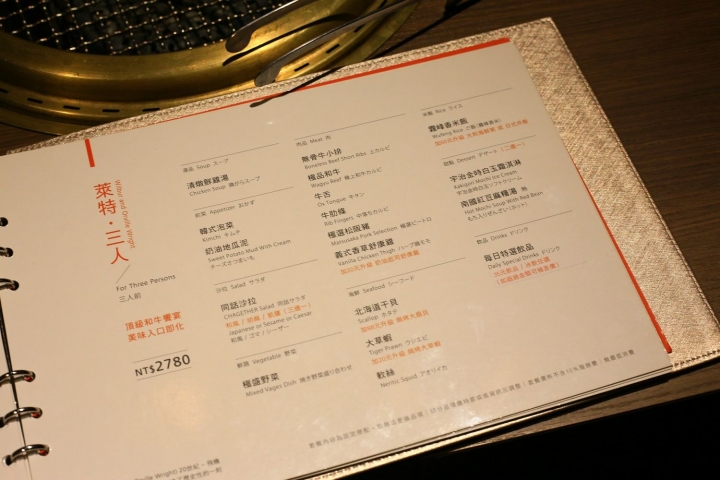 萊特·三人
Wilbur and Orville Wright
For Three Persons
三人前
頂級和牛饗宴
美味入口即化
NT$2780
湯品 Soup スープ
清燉鮮雞湯
Chicken Soup 鶏がらスープ
前菜 Appetizer おかず
韓式泡菜
Kimchi キムチ
奶油地瓜泥
Sweet Potato Mud With Cream
チーズさつまいも
沙拉 Salad サラダ
同話沙拉
CHAGETHER Salad 同話サラダ
和風 / 胡麻 / 凱薩（三選一）
Japanese or Sesame or Caesar
和風 / ゴマ / シーザー
鮮蔬 Vegetable 野菜
極盛野菜
Mixed Vages Dish 焼き野菜盛り合わせ
肉品 Meat 肉
無骨牛小排
Boneless Beef Short Ribs 上カルビ
極品和牛
Wagyu Beef 極上和牛カルビ
牛舌
Ox Tongue 牛タン
牛肋條
Rib Fingers 中落ちカルビ
極選松阪豬
Matsusaka Pork Selection 極選ピートロ
義式香草舒康雞
Vanilla Chicken Thigh ハーブ鶏モモ
加30元升級 奶油起司舒康雞
海鮮 Seafood シーフード
北海道干貝
Scallop ホタテ
大草蝦
Tiger Prawn ラシエビ
軟絲
Neritic Squid アオリイカ
米飯 Rice ライス
霧峰香米飯
Wufeng Rice
甜點 Dessert デザート（二選一）
宇治金時白玉霜淇淋
Kakigori Mochi Ice Cream
宇治金時玉ソフトクリーム
南國紅豆麻糬湯 熱
Hot Mochi Soup With Red Bean
もち入りぜんざい(ホット)
飲品 Drinks ドリンク
每日特選飲品
Daily Special Drinks ドリンク